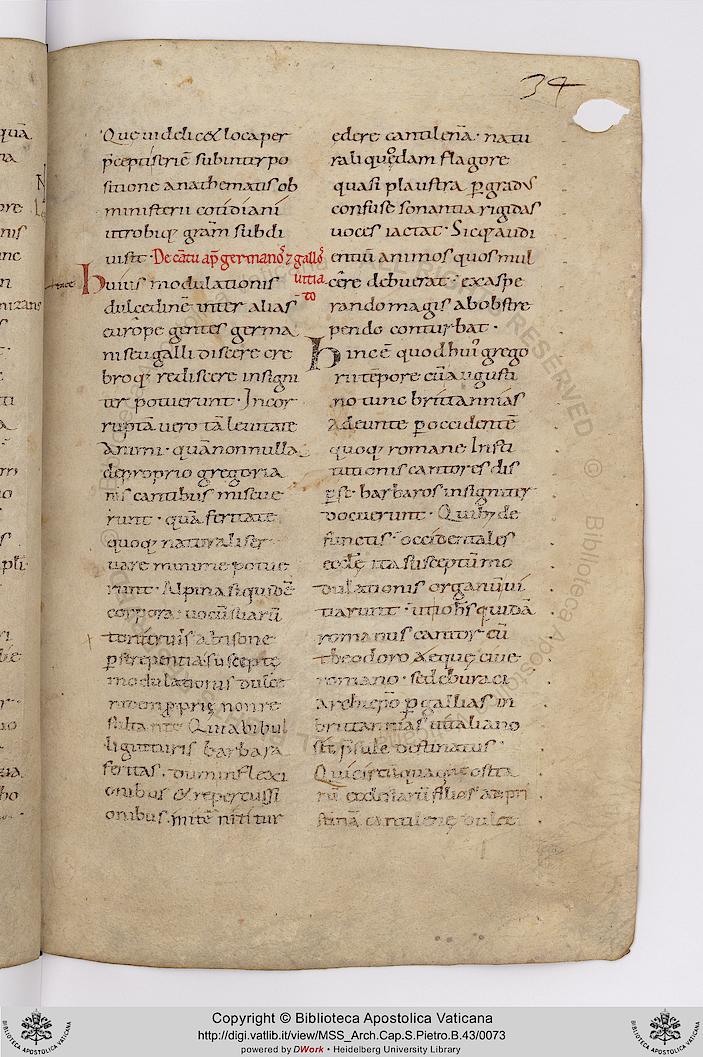 34
Que uidelicet loca per
p̄cepti seriē subinterpo
sitione anathematis ob
ministerii cotidiani
utrobiq; gr̄am subdi
uisit. De cātu ap̄ germanoꝝ ⁊ gallo
uitia
to
Huius modulationis
dulcedinē inter alias
europe gentes germa
ni seu galli discere cre
broq; rediscere insigni
ter potuerunt. Incor
ruptā uero tā leuitate
animi. quā nonnulla
de proprio gregoria
nis cantibus miscue
runt. quā feritate
quoq; naturali ser
uare minime potue
runt. Alpina siquidē
corpora. uocū suarū
tonitruis altisone
ꝑstrepentia. suscepte
modulationis dulce
dinem ꝓprie non re
sultant. Quia bibul
li gutturis barbara
feritas. dum inflexi
onibus & repercussi
onibus. mitē nititur
edere cantilenā. natu
rali quodam fragore
quasi plaustra ꝑ gradus
confuse sonantia rigidas
uoces iactat. Sicq; audi
entiū animos quos mul
cere debuerat. exaspe
rando magis ab obstre
pendo conturbat.
Hinc ē quod hui' grego
rii tēpore cū augusti
no tunc brittannias
adeunte ꝑ occidentē
quoq; romane insti
tutionis cantores dis
ꝑse barbaros insigniter
docuerunt. Quib; de
functis. occidentales
eccl̄e ita susceptū mo
dulationis organū ui
tiarunt. ut ioh̄s quidā
romanus cantor cū
theodoro aeque ciue
romano. sed eburaci
archiep̄o ꝑ gallias in
brittannias uitaliano
sit p̄sule destinatus.
Qui circūquaq; posita
rū ecclesiarū filios ad pri
stinā cantilene dulce
Copyright © Biblioteca Apostolica Vaticana
http://digi.vatlib.it/view/MSS_Arch.Cap.S.Pietro.B.43/0073
powered by DWork • Heidelberg University Library